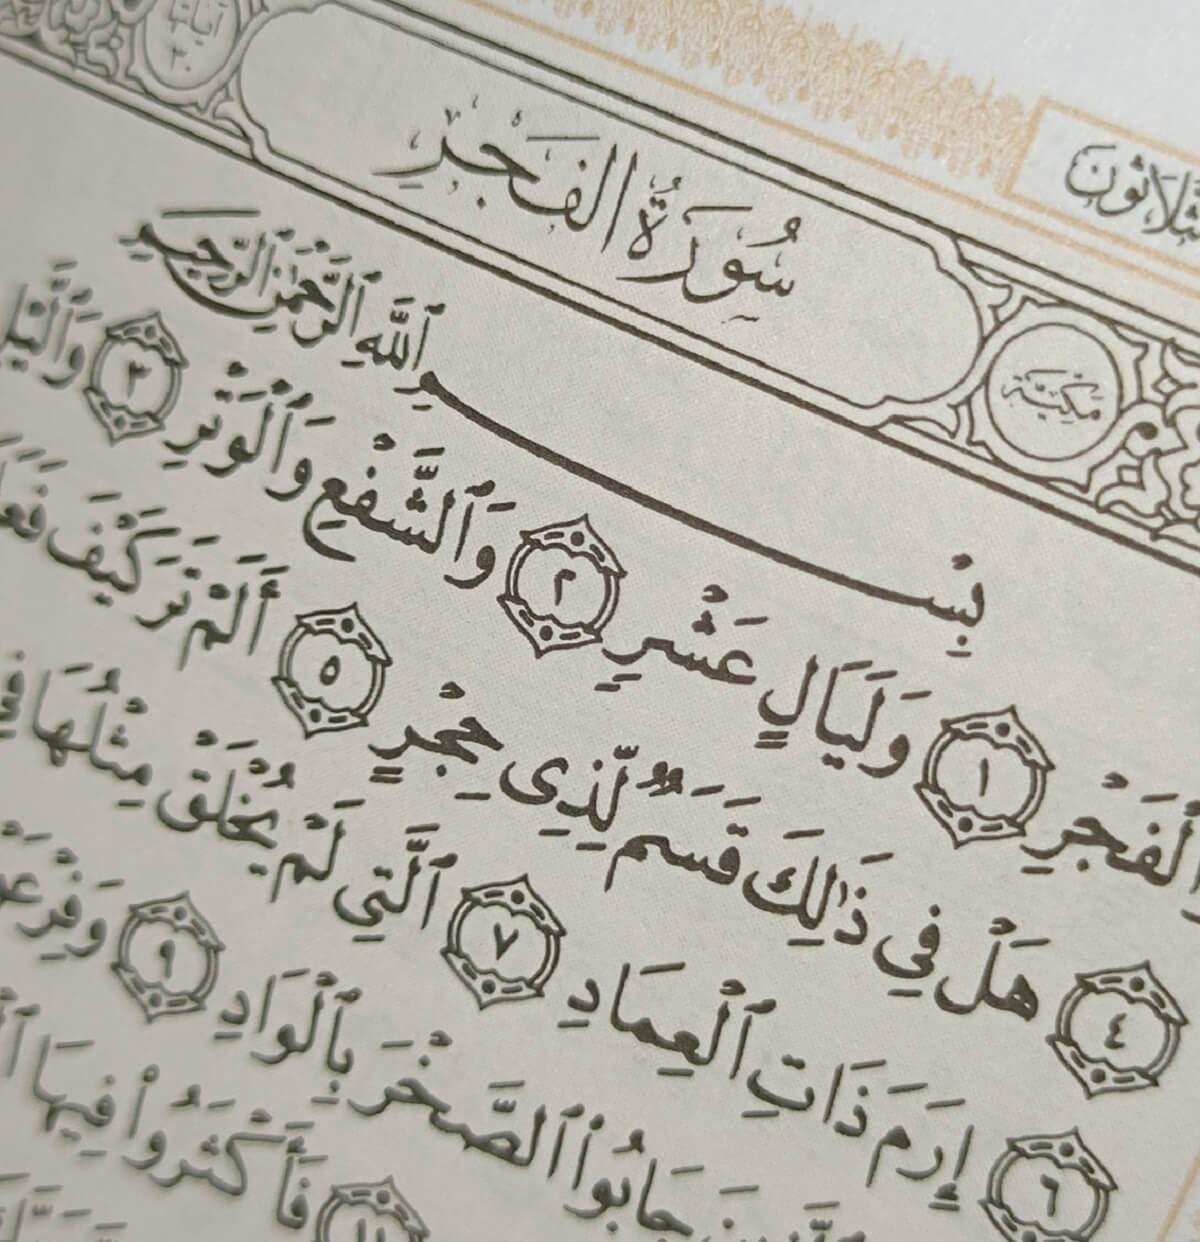 آياتها ٣٠
سُورَةُ الفَجْرِ
مَكِّيَّة
بِسْمِ ٱللَّهِ ٱلرَّحْمَٰنِ ٱلرَّحِيمِ
ٱلْفَجْرِ ١ وَلَيَالٍ عَشْرٍ ٢ وَٱلشَّفْعِ وَٱلْوَتْرِ ٣
٤ هَلْ فِي ذَٰلِكَ قَسَمٌ لِّذِى حِجْرٍ ٥ أَلَمْ تَرَ كَيْفَ
٦ إِرَمَ ذَاتِ ٱلْعِمَادِ ٧ ٱلَّتِي لَمْ يُخْلَقْ مِثْلُهَا
جَابُوا۟ ٱلصَّخْرَ بِٱلْوَادِ ٩
فَأَكْثَرُوا۟ فِيهَا